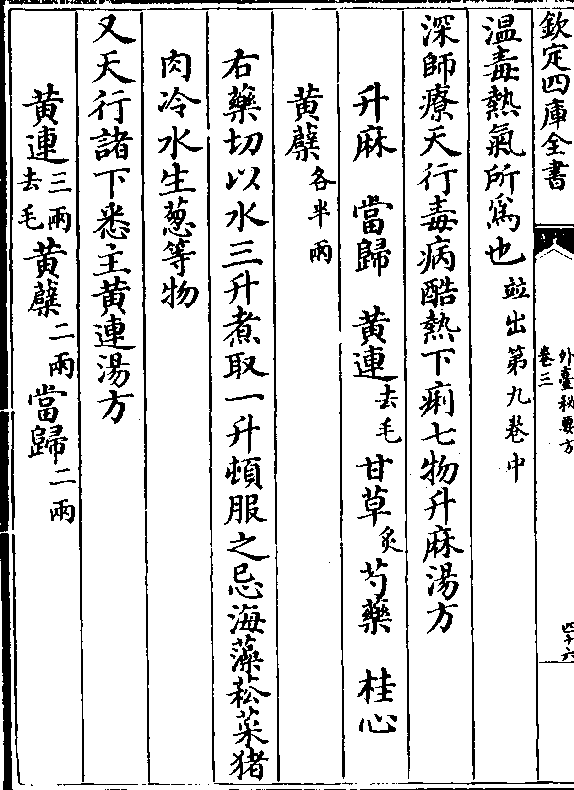 欽定四庫全書
外臺秘要方
卷三
四十六
温毒熱氣所為也竝出第九卷中
深師療天行毒病酷熱下痢七物升麻湯方
升麻 當歸 黃連去毛 甘草炙 芍藥 桂心
黃蘗各半兩
右藥切以水三升煮取一升頓服之忌海藻菘菜猪
肉冷水生葱等物
又天行諸下悉主黃連湯方
黃連三兩去毛 黃蘗二兩 當歸二兩